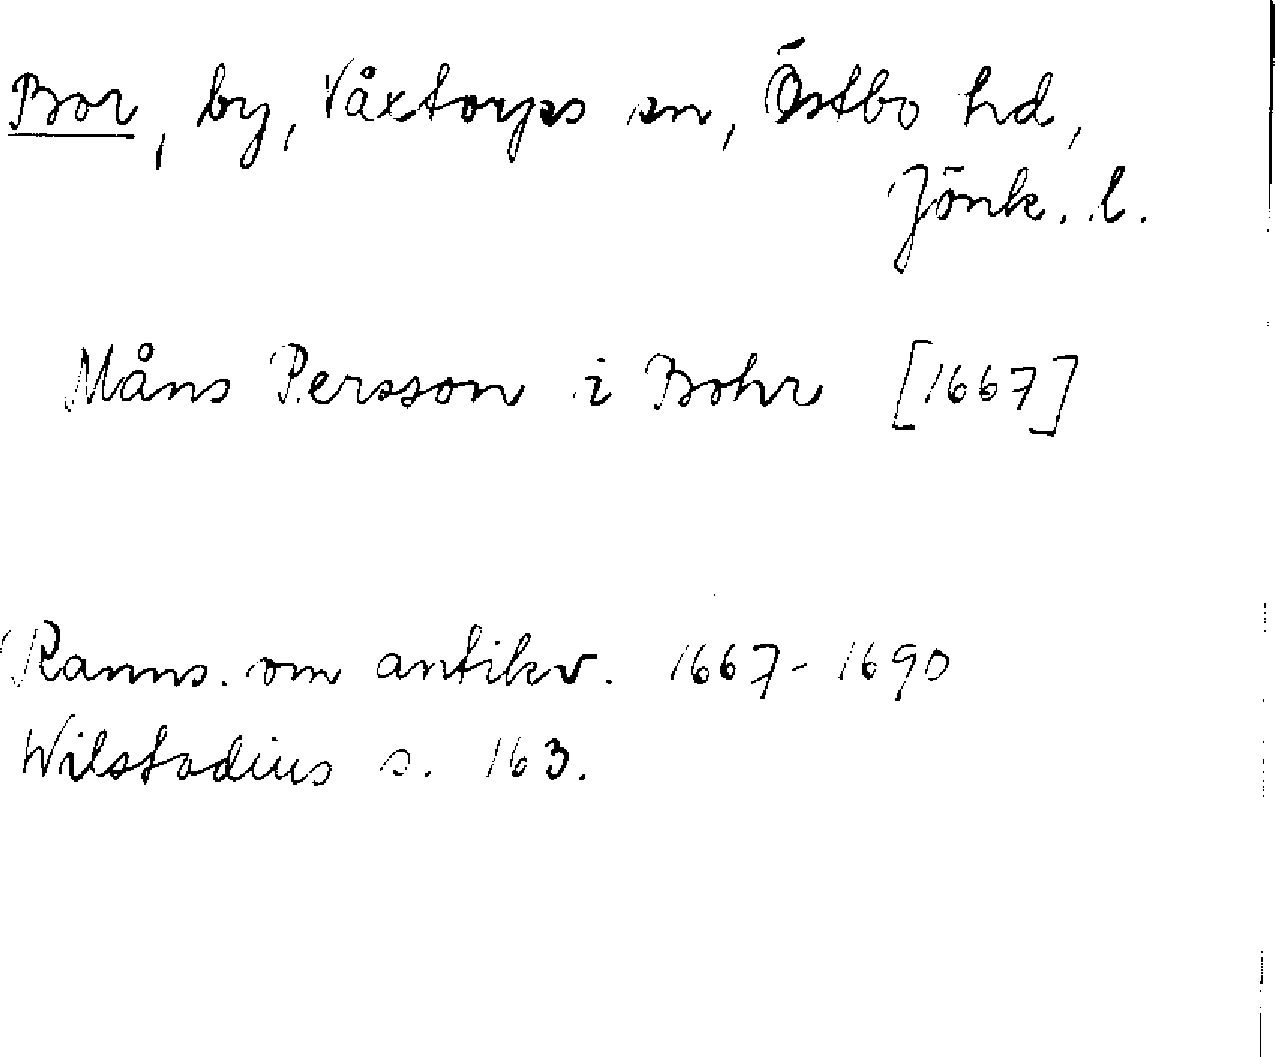 Bor, by, Våxtorps sn, Östbo hd,
Jönk. l.
Måns Persson i Bohr [1667]
Ranns. om antikv. 1667-1690
Wilstadius s. 163.